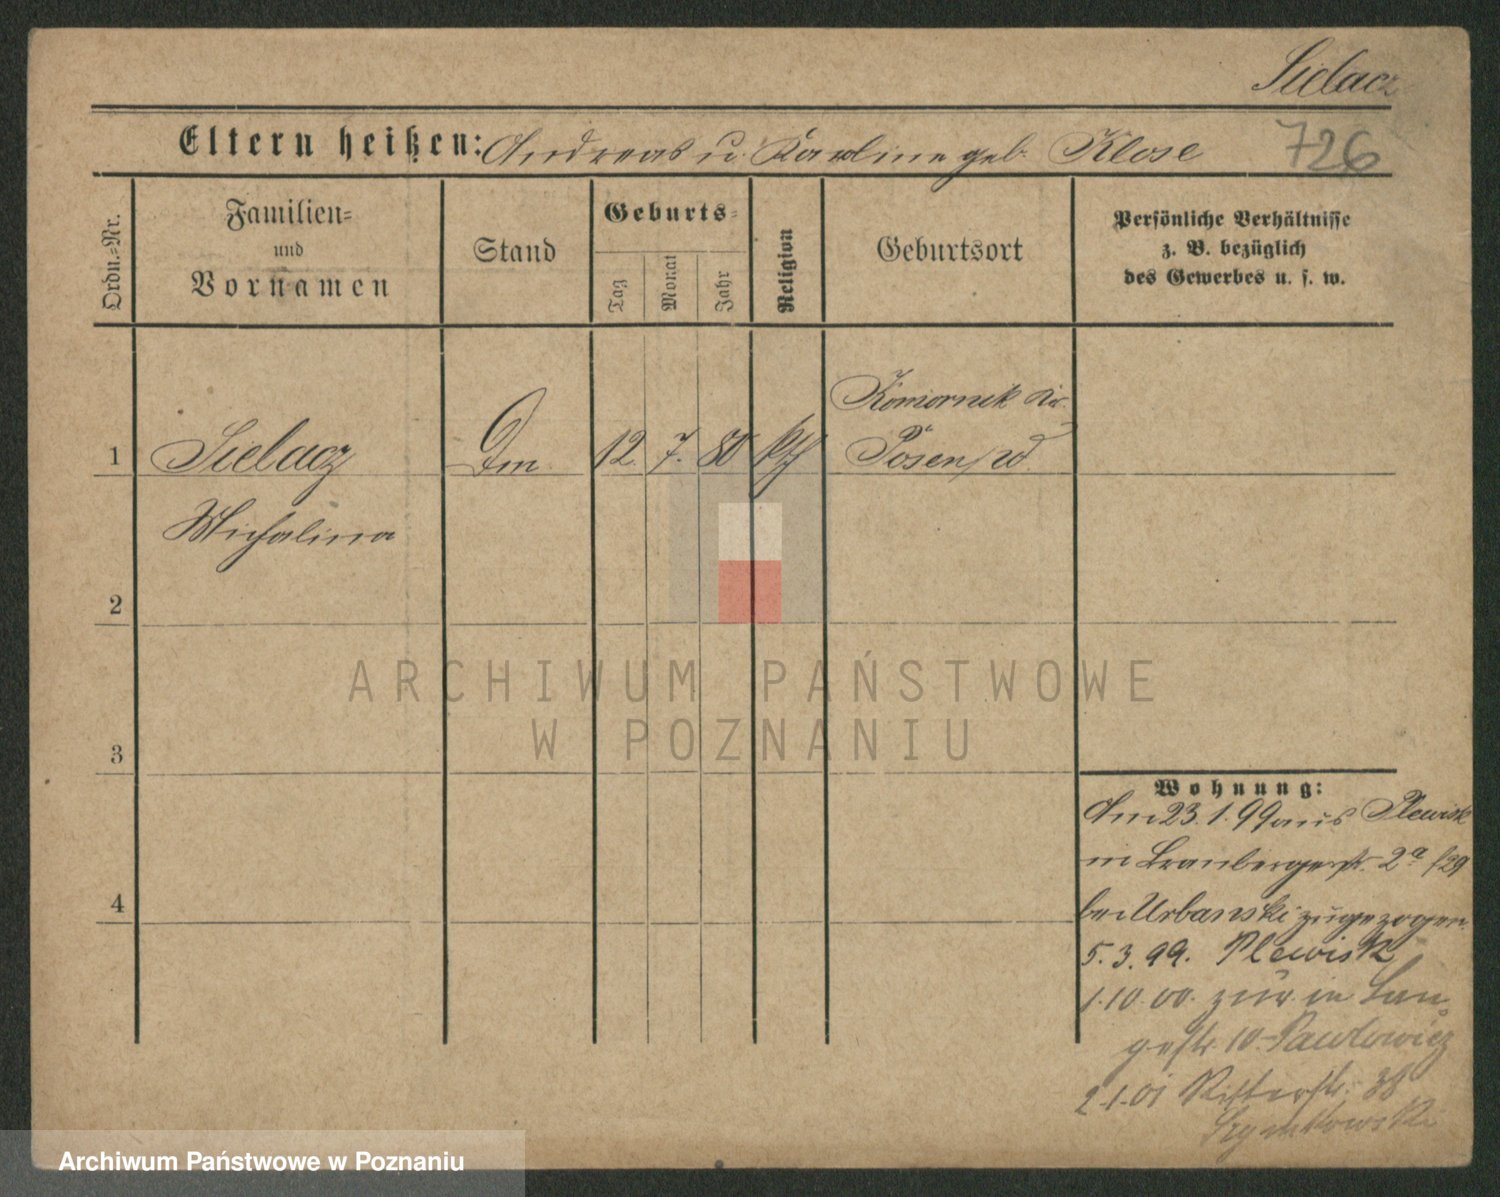 Sielacz
Eltern heißen: Andreas u. Karoline geb. Klose 726
Ordn.=Nr.
Familien=
und
Vornamen
Stand
Geburts=
Tag
Monat
Jahr
Religion
Geburtsort
Persönliche Verhältnisse
z. B. bezüglich
des Gewerbes u. s. w.
Komornik Kr.
1 Sielacz Dm 12. 7. 80 kth Posen/W.
Michalina
2
ARCHIWUM PAŃSTWOWE
W POZNANIU
3
Wohnung:
Am 23.1.99 aus Plewisk
in 2a /29
4
bei Urbanski zugezogen
5.3.99. Plewisk
1.10.00. zur. in Lan
gestr. 10 Pawlowicz
2.1.01 Ritterstr. 38
Szymkowski
Archiwum Państwowe w Poznaniu